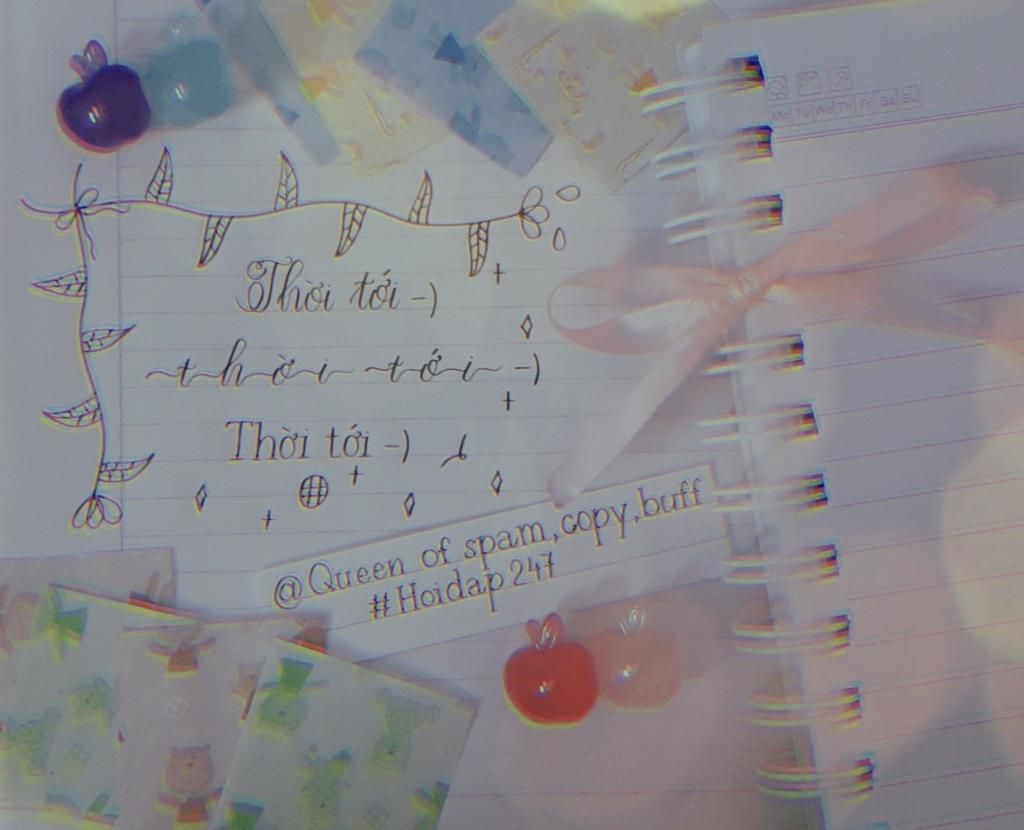 Mo Tu We Th Fr Sa Su
Thời tới -)
thời tới -)
Thời tới -)
@Queen of spam,copy,buff
#Hoidap247